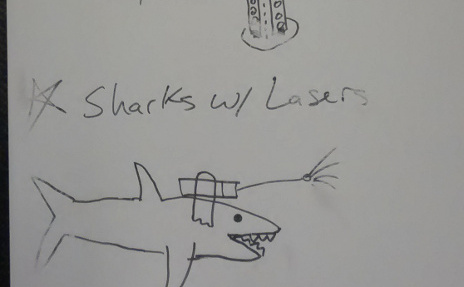 Sharks w/ Lasers